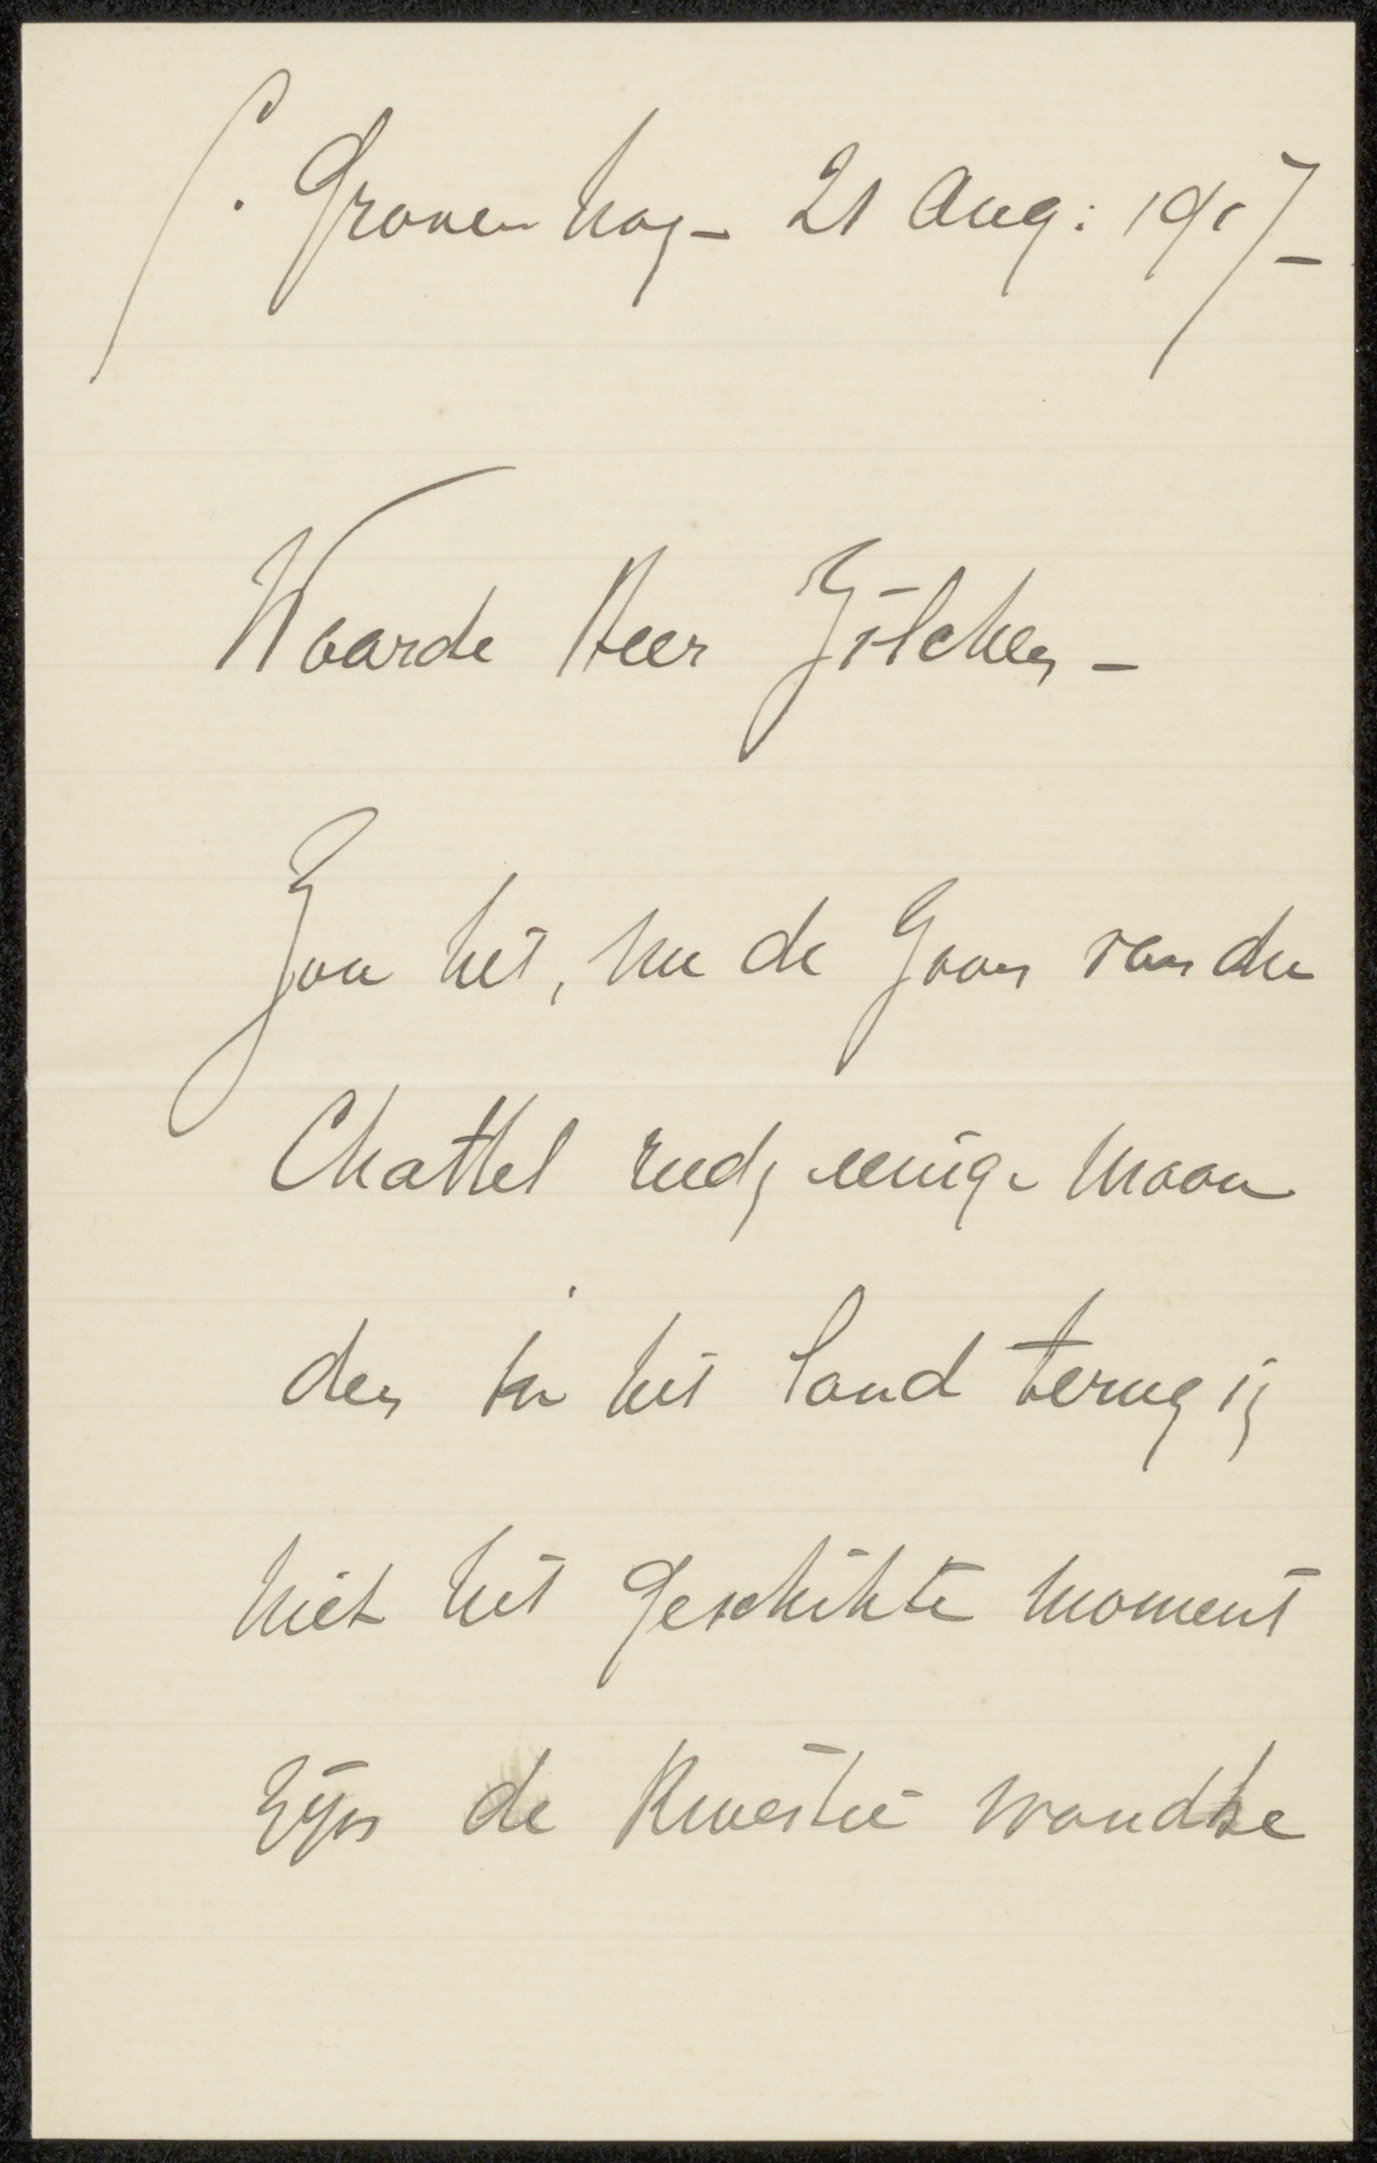 s. Gravenhage 21 Aug: 1917
Waarde Heer Zilcken –
Zou het, nu de Zoon van du
Chattel reeds eenige maan
den in het land terug is
niet het geschikte moment
zijn de kwestie